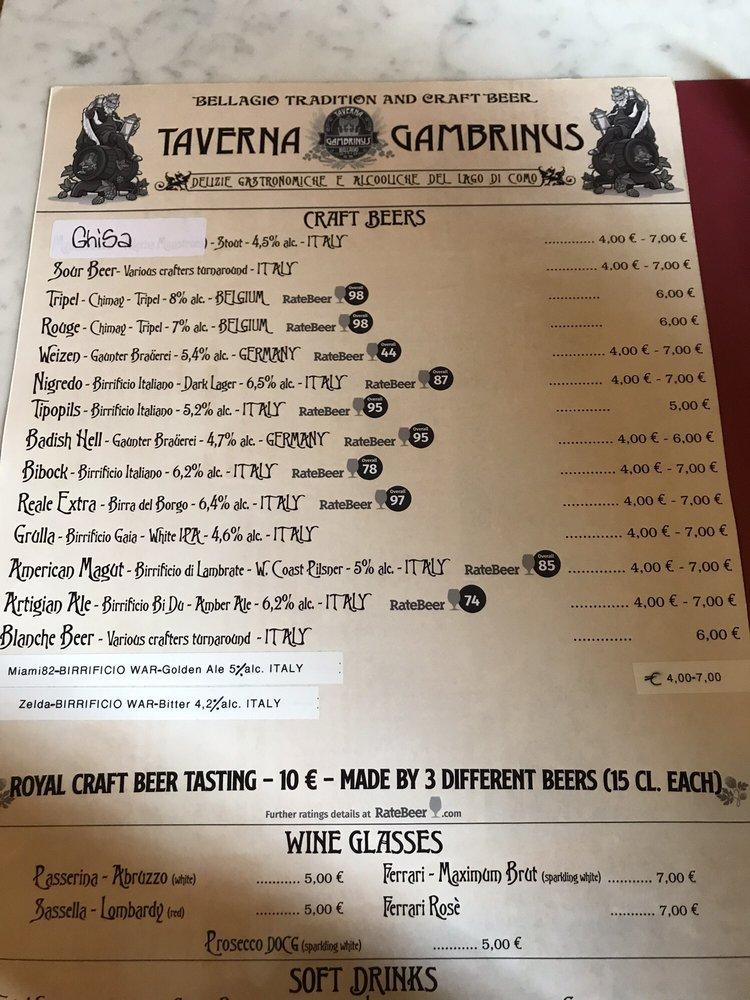 BELLAGIO TRADITION AND CRAFT BEER
TAVERNA GAMBRINUS
TAVERNA GAMBRINUS BELLAGIO
DELIZIE GASTRONOMICHE E ALCOOLICHE DEL LAGO DI COMO
CRAFT BEERS
Ghisa ) - Stout - 4,5% alc. - ITALY ............ 4,00 € - 7,00 €
Sour Beer - Various crafters turnaround - ITALY ............ 4,00 € - 7,00 €
Tripel - Chimay - Tripel - 8% alc. - BELGIUM RateBeer Overall 98 ............ 6,00 €
Rouge - Chimay - Tripel - 7% alc. - BELGIUM RateBeer Overall 98 ............ 6,00 €
Weizen - Gaünter Braüerei - 5,4% alc. - GERMANY RateBeer Overall 44 ............ 4,00 € - 7,00 €
Nigredo - Birrificio Italiano - Dark Lager - 6,5% alc. - ITALY RateBeer Overall 87 ............ 4,00 € - 7,00 €
Tipopils - Birrificio Italiano - 5,2% alc. - ITALY RateBeer Overall 95 ............ 5,00 €
Badish Hell - Gaunter Braüerei - 4,7% alc. - GERMANY RateBeer Overall 95 ............ 4,00 € - 6,00 €
Bibock - Birrificio Italiano - 6,2% alc. - ITALY RateBeer Overall 78 ............ 4,00 € - 7,00 €
Reale Extra - Birra del Borgo - 6,4% alc. - ITALY RateBeer Overall 97 ............ 4,00 € - 7,00 €
Grulla - Birrificio Gaia - White IPA - 4,6% alc. - ITALY ............ 4,00 € - 7,00 €
American Magut - Birrificio di Lambrate - W. Coast Pilsner - 5% alc. - ITALY RateBeer Overall 85 ............ 4,00 € - 7,00 €
Artigian Ale - Birrificio Bi Du - Amber Ale - 6,2% alc. - ITALY RateBeer Overall 74 ............ 4,00 € - 7,00 €
Blanche Beer - Various crafters turnaround - ITALY ............ 6,00 €
Miami82-BIRRIFICIO WAR-Golden Ale 5%alc. ITALY € 4,00-7,00
Zelda-BIRRIFICIO WAR-Bitter 4,2%alc. ITALY
ROYAL CRAFT BEER TASTING - 10 € - MADE BY 3 DIFFERENT BEERS (15 CL. EACH)
Further ratings details at RateBeer.com
WINE GLASSES
Passerina - Abruzzo (white) ........... 5,00 € Ferrari - Maximum Brut (sparkling white) ........... 7,00 €
Sassella - Lombardy (red) ........... 5,00 € Ferrari Rosè ........... 7,00 €
Prosecco DOCG (sparkling white) ........... 5,00 €
SOFT DRINKS